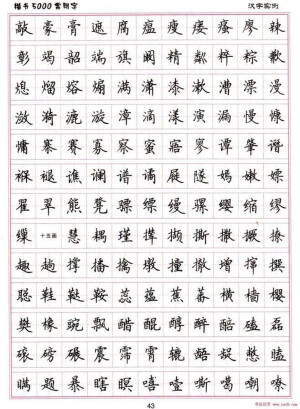 楷书5000常用字 汉字实例
敲 豪 膏 遮 腐 瘟 瘦 瘘 廖 辣
彰 竭 韶 端 旗 阚 精 粼 粹 粽 歉
熄 熘 熔 煽 满 潇 漆 漱 漕 漂 漫
潋 漪 漉 漩 漳 滴 漾 演 漏 慢 慷
慵 寨 赛 寡 察 蜜 寤 寥 谭 肇 谮
褓 褪 谯 谰 谱 谲 屣 隧 嫣 嫩 嫖
翟 翠 熊 凳 骠 缥 缦 骡 缨 缩 缪
缫 十五画 慧 耦 瑾 撵 撷 撕 撒 撅 撩
趣 趟 撑 播 擒 墩 撞 撤 增 撺 撰
聪 鞋 鞑 鞍 蕊 蕴 蕉 蕃 横 樯 樱
樊 橡 豌 飘 醋 醌 醇 醉 醅 磕 磊
磙 磅 碾 震 霈 霄 辘 龉 龊 憋 瞌
瞒 题 暴 瞎 瞑 嘻 噎 嘶 噶 嘲 嘹
43